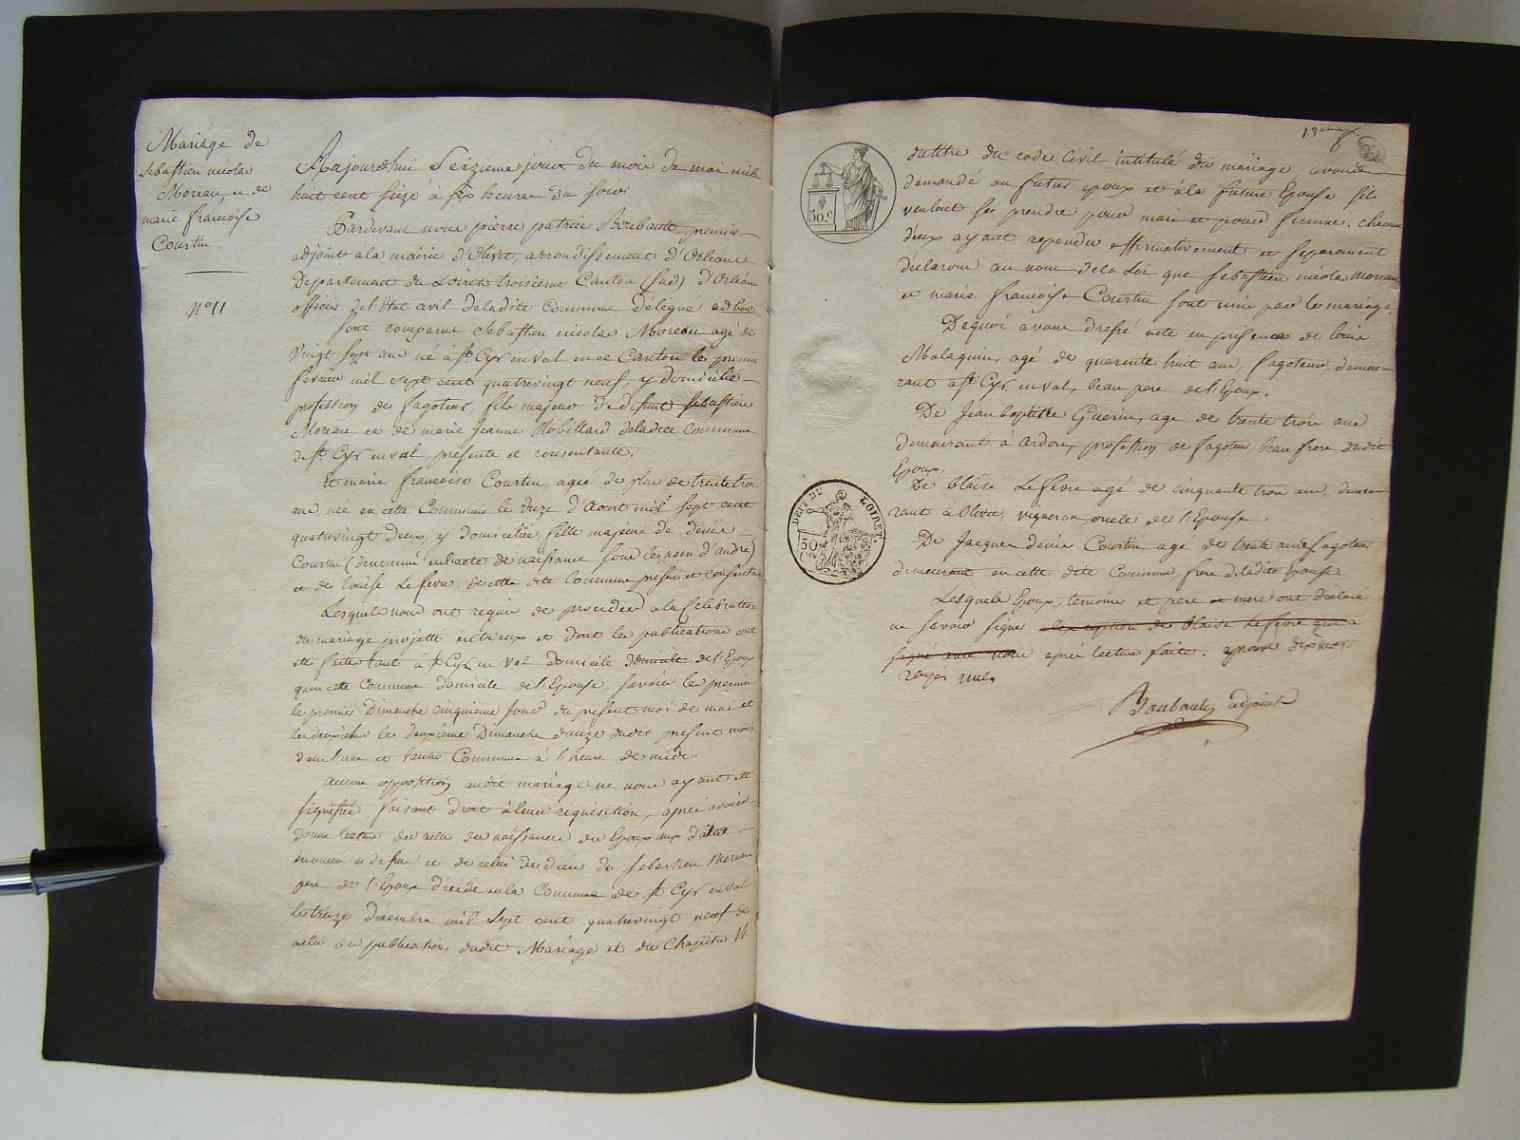 Mariage de
sebastien nicolas
Moreau, et de
marie francoise
Courtin.
n.° 11
Aujourdhui Seizieme jour du mois de mai mil
huit cent seize à six heures du soir
Pardevant nous pierre patrice Boubault premier
adjoint a la mairie d'Olivet, arrondissement d'Orleans
Departement du Loiret troisieme Canton (sud) d'Orléans
officier del'Etat civil deladite Commune délégué
sont comparus Sebastien nicolas Moreau agé de
Vingt sept ans né à St Cyr en val en ce Canton le premier
fevrier mil sept cent quatrevingt neuf, y domicilié
profession de fagoteur, fils majeur de defunt sebastien
Moreau et de marie Jeanne Robillard deladite Commune
de St Cyr en val, présente et consentante.
Et marie francoise Courtin, agée de plus de trente trois
ans née en cette Commune le Onze d'Aout mil sept cent
quatrevingt Deux, y domiciliée, fille majeure de denis
Courtin (denommé en l'acte de naissance sous les nom d'andre)
et de Louise Lefevre, de cette dite Commune present et consentant
Lesquels nous ont requis de proceder a la Celebration
du mariage projetté entr'eux et dont les publications ont
été faites tant à St Cyr en Val domicile domicile de l'Epoux
qu'en cette Commune domicile de l'Epouse savoir la premiere
le premier Dimanche cinquieme jour du present mois de mai et
la deuxieme le deuxieme Dimanche douze dudit present mois
dans l'une et l'autre Commune à l'heure de midi.
Aucune opposition audit mariage ne nous ayant été
signifiée faisant droit à leur requisition, après avoir
donné lecture des actes de naissance des Epoux aux dates
enoncé et de celui de deces de Sebastien Moreau
pere de l'Epoux décédé en la Commune de St Cyr en val
le treize decembre mil Sept cent quatrevingt neuf de
actes de publication dudit Mariage et du Chapitre VI
13
dutitre du code Civil intitulé du mariage, avons
demandé au futur epoux et à la future Epouse s'ils
veulent se prendre pour mari et pour femme. chacun
d'eux ayant repondu affirmativement et separement
declarons au nom dela Loi que sebastien nicolas Moreau
et marie francoise Courtin sont unis par le mariage.
Dequoi avons dressé acte en présence de louis
Malaquin, agé de quarente huit ans, fagoteur, demeu-
rant a St Cyr en val, beau pere de l'Epoux.
De Jean baptiste Guerin, age de trente trois ans
demeurant a Ardon, profession de fagoteur, beau frere dudit
Epoux.
De blaise Lefevre agé de cinquante trois ans, demeu-
rant a Olivet, vigneron oncle de l'Epouse.
De Jacques denis Courtin agé de trente ans fagoteur
demeurant en cette dite Commune, frere de ladite Epouse
Lesquels Epoux, temoins et pere et mere ont declare
ne savoir signé l'exception de blaise Lefevre qui a
signé avec nous après lecture faite. approuve dix mots
rayés nuls
Boubault adjoint
50 C
DEPT DU LOIRET.
50